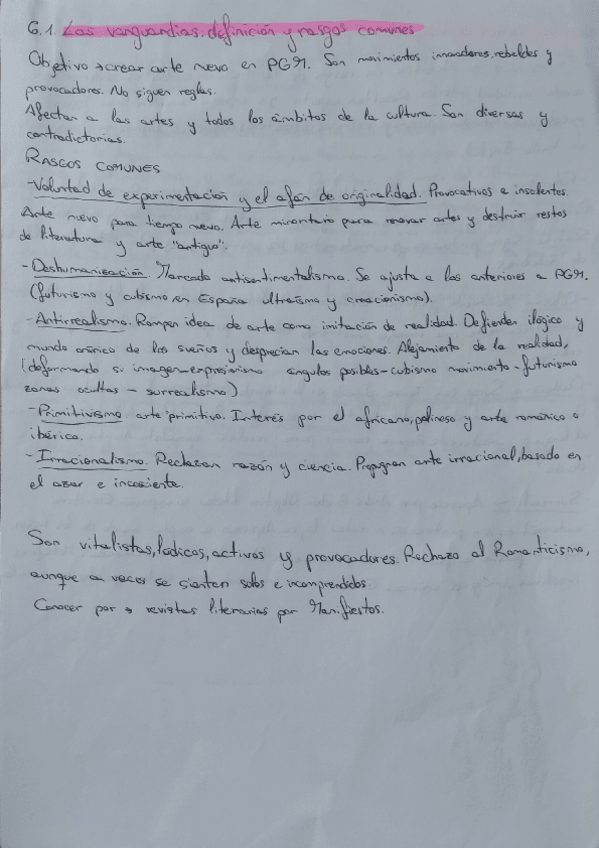 6.1. Las vanguardias. definición y rasgos comunes
Objetivo → crear arte nuevo en PGM. Son movimientos innovadores, rebeldes y
provocadores. No siguen reglas.
Afectan a las artes y todos los ámbitos de la cultura. Son diversas y
contradictorias.
RASGOS COMUNES
-Voluntad de experimentación y el afán de originalidad. Provocativos e insolentes.
Arte nuevo para tiempo nuevo. Arte minoritario para renovar artes y destruir restos
de literatura y arte "antiguo".
-Deshumanización. Marcado antisentimentalismo. Se ajusta a las anteriores a PGM.
(futurismo y cubismo, en España ultraísmo y creacionismo).
-Antirrealismo. Rompen idea de arte como imitación de realidad. Defienden ilógico y
mundo onírico de los sueños y desprecian las emociones. Alejamiento de la realidad,
(deformando su imagen-expresionismo ángulos posibles-cubismo movimiento-futurismo
zonas ocultas - surrealismo)
-Primitivismo arte primitivo. Interés por el africano, polineso y arte románico o
ibérico.
-Irracionalismo. Rechazan razón y ciencia. Propugnan arte irracional, basado en
el azar e incosiente.
Son vitalistas, lúdicos, activos y provocadores. Rechazo al Romanticismo,
aunque a veces se sienten solos e incomprendidos
Conocer por → revistas literarias por Manifiestos.